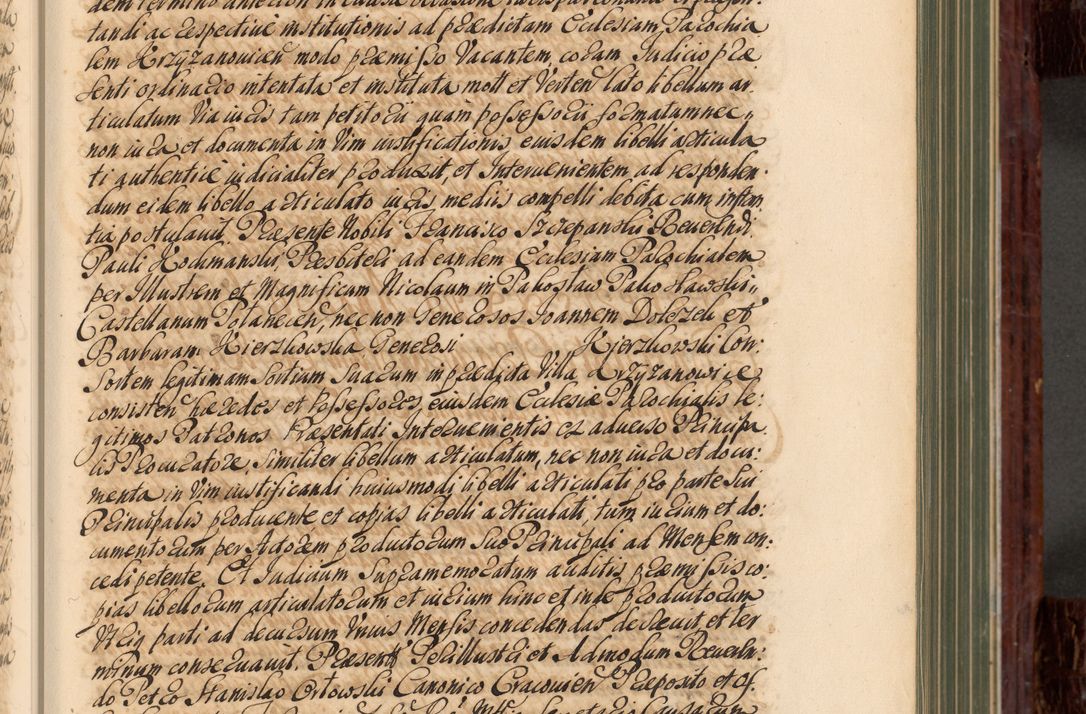 dem termino ante eum in causa occasione iuris patronatus et praesen-
tandi ac respective institutionis ad praedictam Ecclesiam Parochia
lem Krzyzanovicen modo praemisso Vacantem, coram Judicio prae
senti ordinario intentata et instituta mott et Verten lato libellum ar
ticulatum Via iuris tam petitorii quam possessorii formatum nec„
non iura et documenta in Vim iustificationis eiusdem libelli articula
ti authentice iudicialiter produxit, et Intervenientem ad responden-
dum eidem libello articulato iuris mediis compelli debita cum instan
tia postulavit. Praesente Nobili Francisco Szczepanski Reverendi
Pauli Kochmanski, Presbiteri ad eandem Ecclesiam Parochialem
per Illustrem et Magnificum Nicolaum in Pakoslaw Pakoslawski„
Castellanum Polanecen, nec non Generosos Joannem Dolezeli et
Barbaram Kierzkowska Generosi Kierzkowski Con:
Sortem legitimam Sortium Suarum in praedicta Villa Krzyzanowice
consisten haeredes et Possessores, eiusdem Ecclesiae Parochialis le:
gitimos Patronos Praesentati Intervenientis ex adverso Principa
lis Procuratore, Similiter libellum articulatum, nec non iura et docu:
menta in Vim iustificandi huiusmodi libelli articulati pro parte Sui
Principalis producente et copias libelli articulati, tum iurium et do:
cumentorum per Actorem productorum Suo Principali ad Mensem con:
cedi petente. Et Judicium Supramemoratum auditis praemissis co:
pias libellorum articulatorum et iurium hinc et inde productorum
Utriq parti ad decursum Unius Mensis concedendas decrevit et ter
minum conservavit. Praesentt Perillustri et Admodum Reveren:
do Petro Stanislao Orlowski Canonico Cracovien Praeposito et Of.